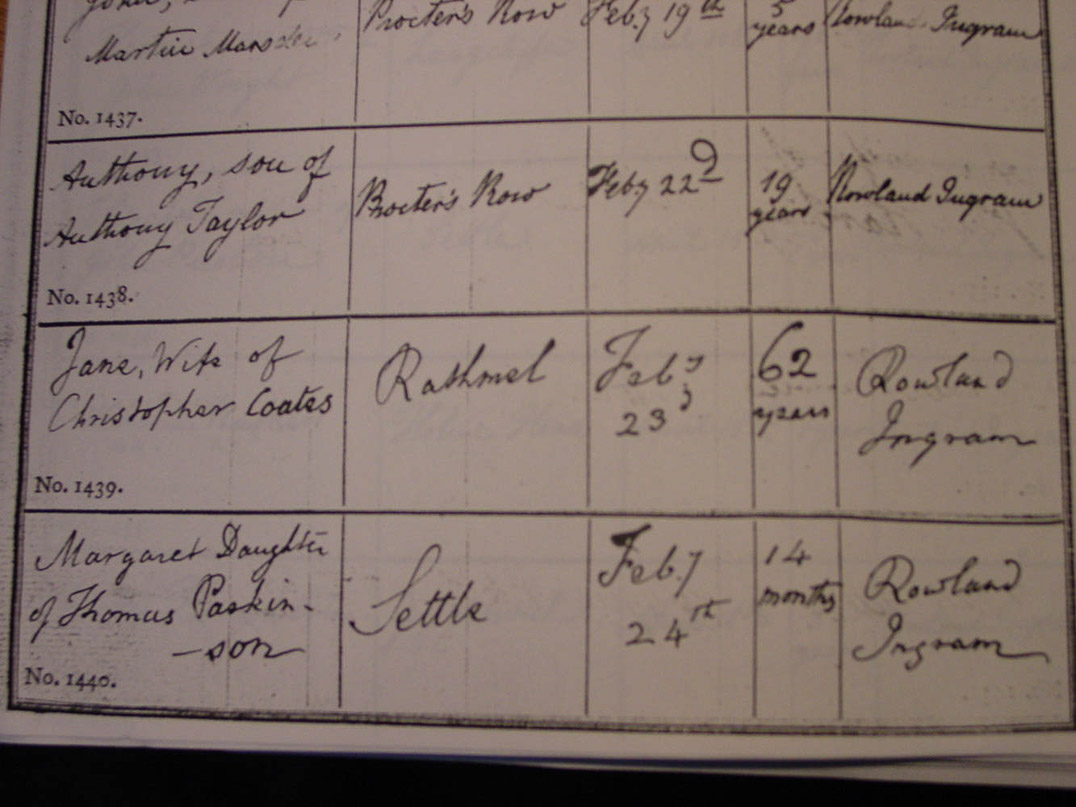 Martin Marsden. Procter's Row Feby 19th 5 years Rowland Ingram
No. 1437.
Anthony, son of
Anthony Taylor Procter's Row Feby 22d 19 years Rowland Ingram
No. 1438.
Jane, Wife of
Christopher Coates Rathmel Feby 23d 62 years Rowland Ingram
No. 1439.
Margaret Daughter
of Thomas Paskin-
-son Settle Feby 24th 14 months Rowland Ingram
No. 1440.